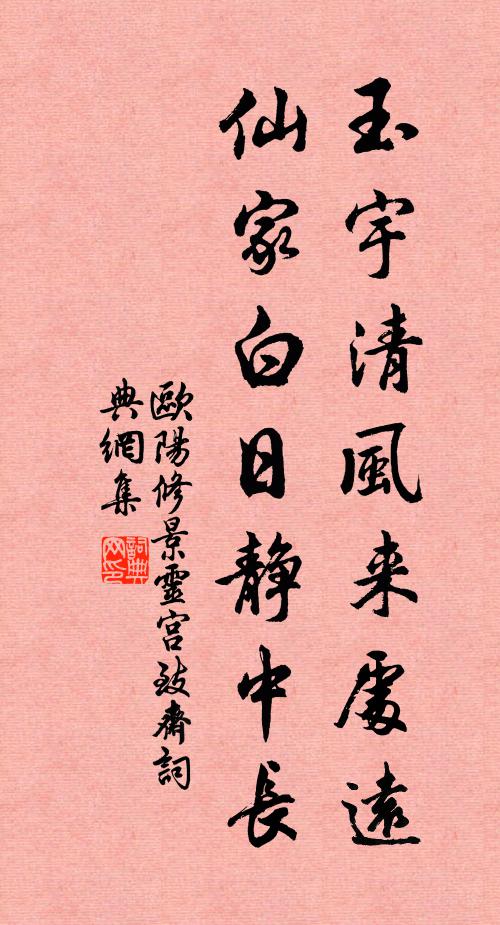 玉宇清風来處遠
仙家白日静中長
歐陽修景靈宫致齋詞
典網集
詞典
网印